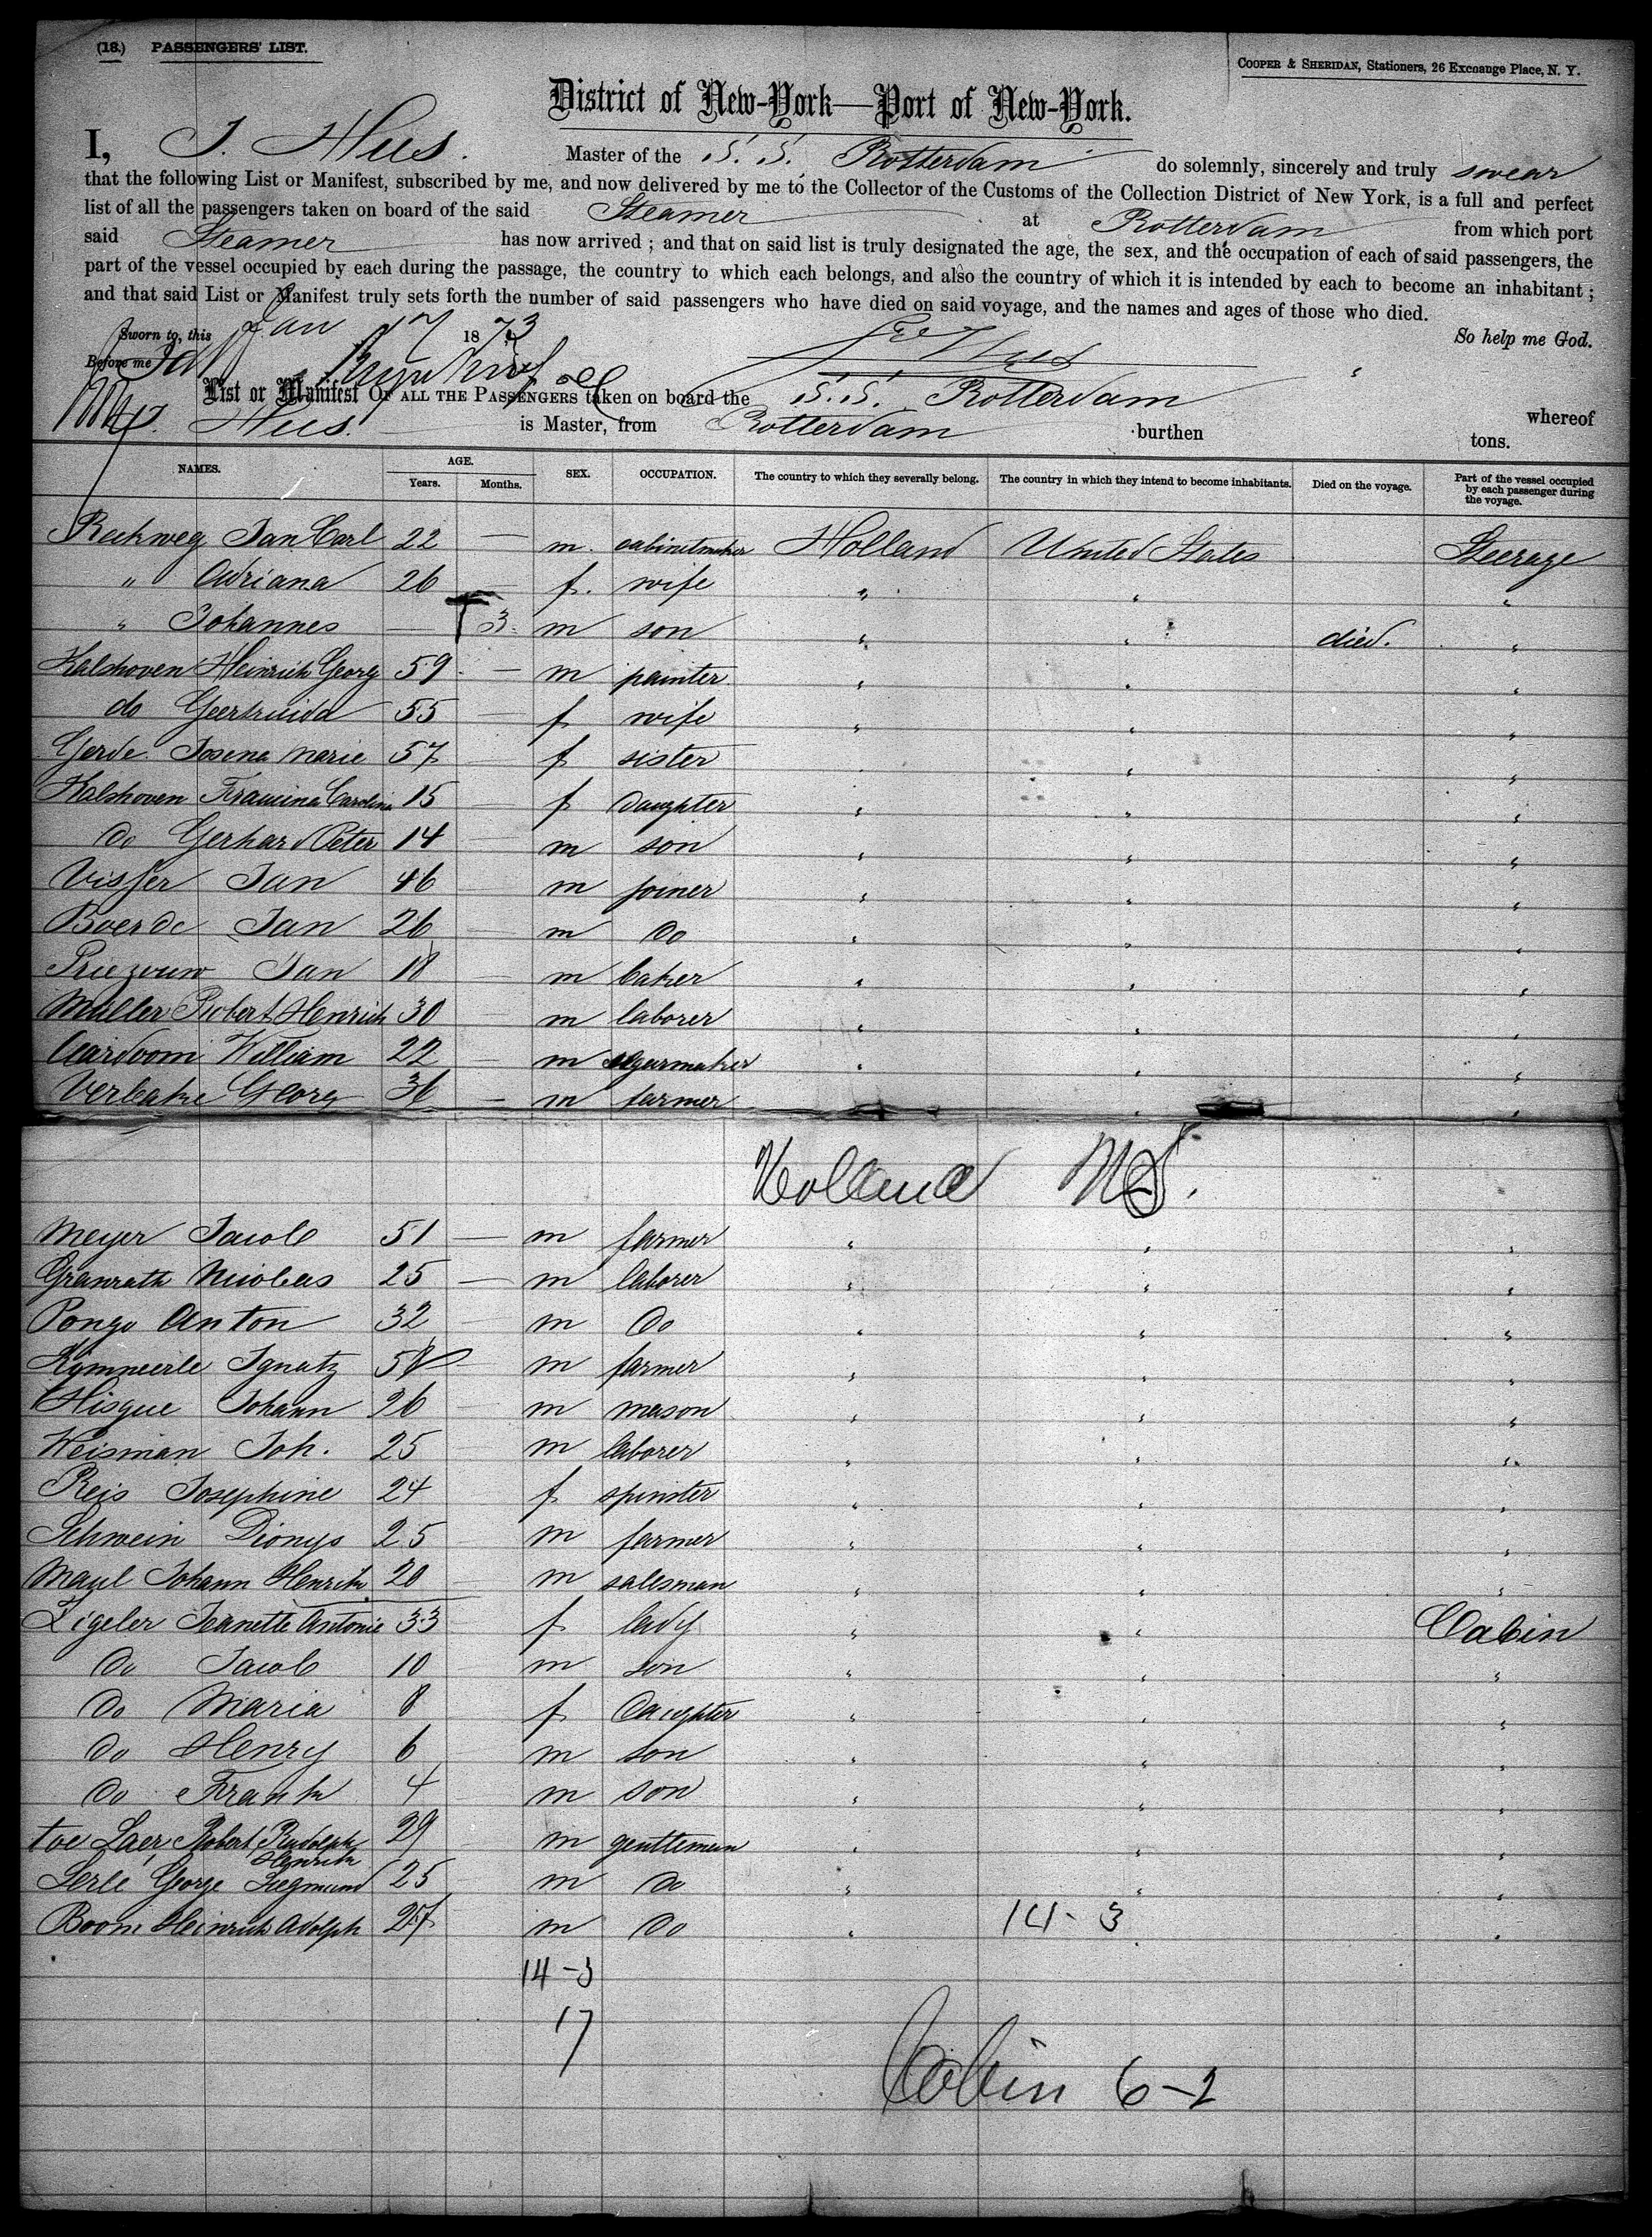 (18.) PASSENGERS' LIST.
COOPER & SHERIDAN, Stationers, 26 Exchange Place, N. Y.
District of New-York—Port of New-York.
I, J. Hus. Master of the S. S. Rotterdam do solemnly, sincerely and truly swear
that the following List or Manifest, subscribed by me, and now delivered by me to the Collector of the Customs of the Collection District of New York, is a full and perfect
list of all the passengers taken on board of the said Steamer at Rotterdam from which port
said Steamer has now arrived; and that on said list is truly designated the age, the sex, and the occupation of each of said passengers, the
part of the vessel occupied by each during the passage, the country to which each belongs, and also the country of which it is intended by each to become an inhabitant;
and that said List or Manifest truly sets forth the number of said passengers who have died on said voyage, and the names and ages of those who died.
So help me God.
Sworn to, this Jan 17 1873
J. Hus
Before me
List or Manifest OF ALL THE PASSENGERS taken on board the S.S. Rotterdam whereof
Hus. is Master, from Rotterdam burthen tons.
NAMES. AGE. Years. Months. SEX. OCCUPATION. The country to which they severally belong. The country in which they intend to become inhabitants. Died on the voyage. Part of the vessel occupied by each passenger during the voyage.
Reckweg Jan Carl 22 — m. cabinetmaker Holland United States Steerage
" Adriana 26 f. wife " " "
" Johannes — 3 m son " " died. "
Kalshoven Heinrich Georg 59 — m painter " " "
do Geertruida 55 — f wife " " "
Gerde Josena Marie 57 — f sister " " "
Kalshoven Francina Carolina 15 — f daughter " " "
do Gerhard Peter 14 — m son " " "
Visser Jan 46 m joiner " " "
Boerde Jan 26 m do " " "
Jan 18 — m baker " " "
Muller Robert Henrich 30 m laborer " " "
Aardoom William 22 — m segarmaker " " "
Verbake Georg 36 — m farmer " "
Holland U.S.
Meyer Jacob 51 — m farmer " " "
Granrath Nicolas 25 — m laborer " " "
Pongo Anton 32 m do " " "
Kymneerle Ignatz 58 m farmer " " "
Hisque Johann 26 m mason " " "
Weisman Joh. 25 m laborer " " "
Reis Josephine 24 f spinster " " "
Schwein Dionys 25 m farmer " " "
Mayel Johann Henrich 20 m salesman " " "
Zigeler Jeanette Antonie 33 f lady " " Cabin
do Jacob 10 m son " " "
do Maria 8 f daughter " " "
do Henry 6 m son " " "
do Frank 4 m son " " "
toe Laer, Robert Rudolph Henrich 29 m gentleman " " "
Serle George Siegmund 25 m do " " "
Boom Heinrich Adolph 27 m do " 14 - 3 "
14 - 3
17
Cabin 6 - 2